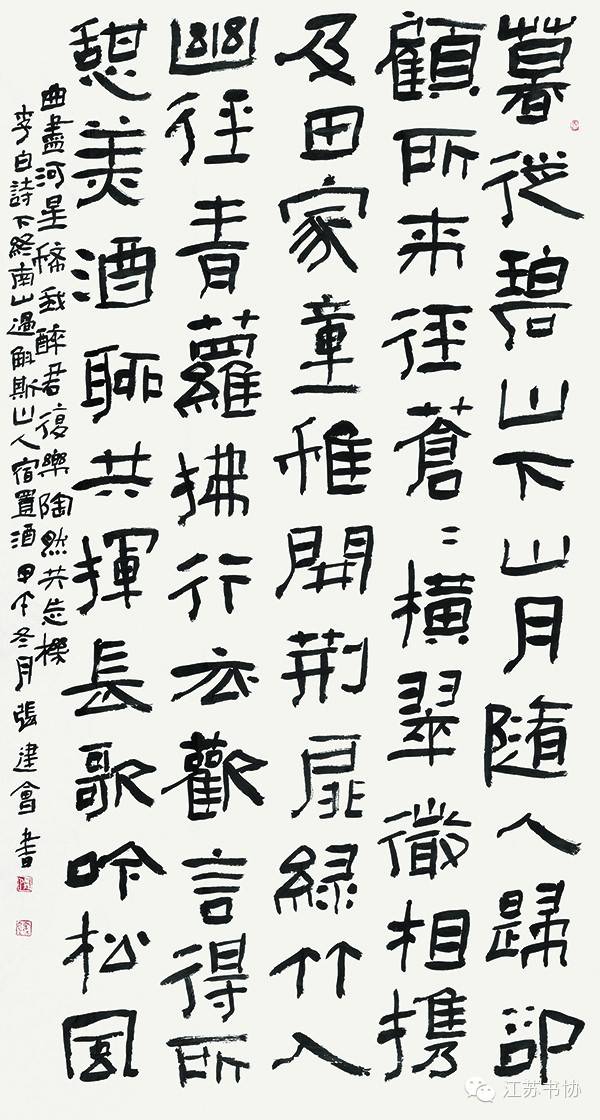 暮從碧山下山月隨人歸卻
顧所來徑蒼〻橫翠微相攜
及田家童稚開荊扉綠竹入
幽徑青蘿拂行衣歡言得所
憩美酒聊共揮長歌吟松風
曲盡河星稀我醉君復樂陶然共忘機
李白詩下終南山過斛斯山人宿置酒甲午冬月張建會書
江苏书协